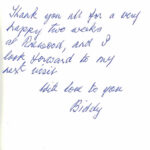 Thank you all for a very
happy two weeks
at Rockwood, and I
look forward to my
next visit
with love to you
Biddy